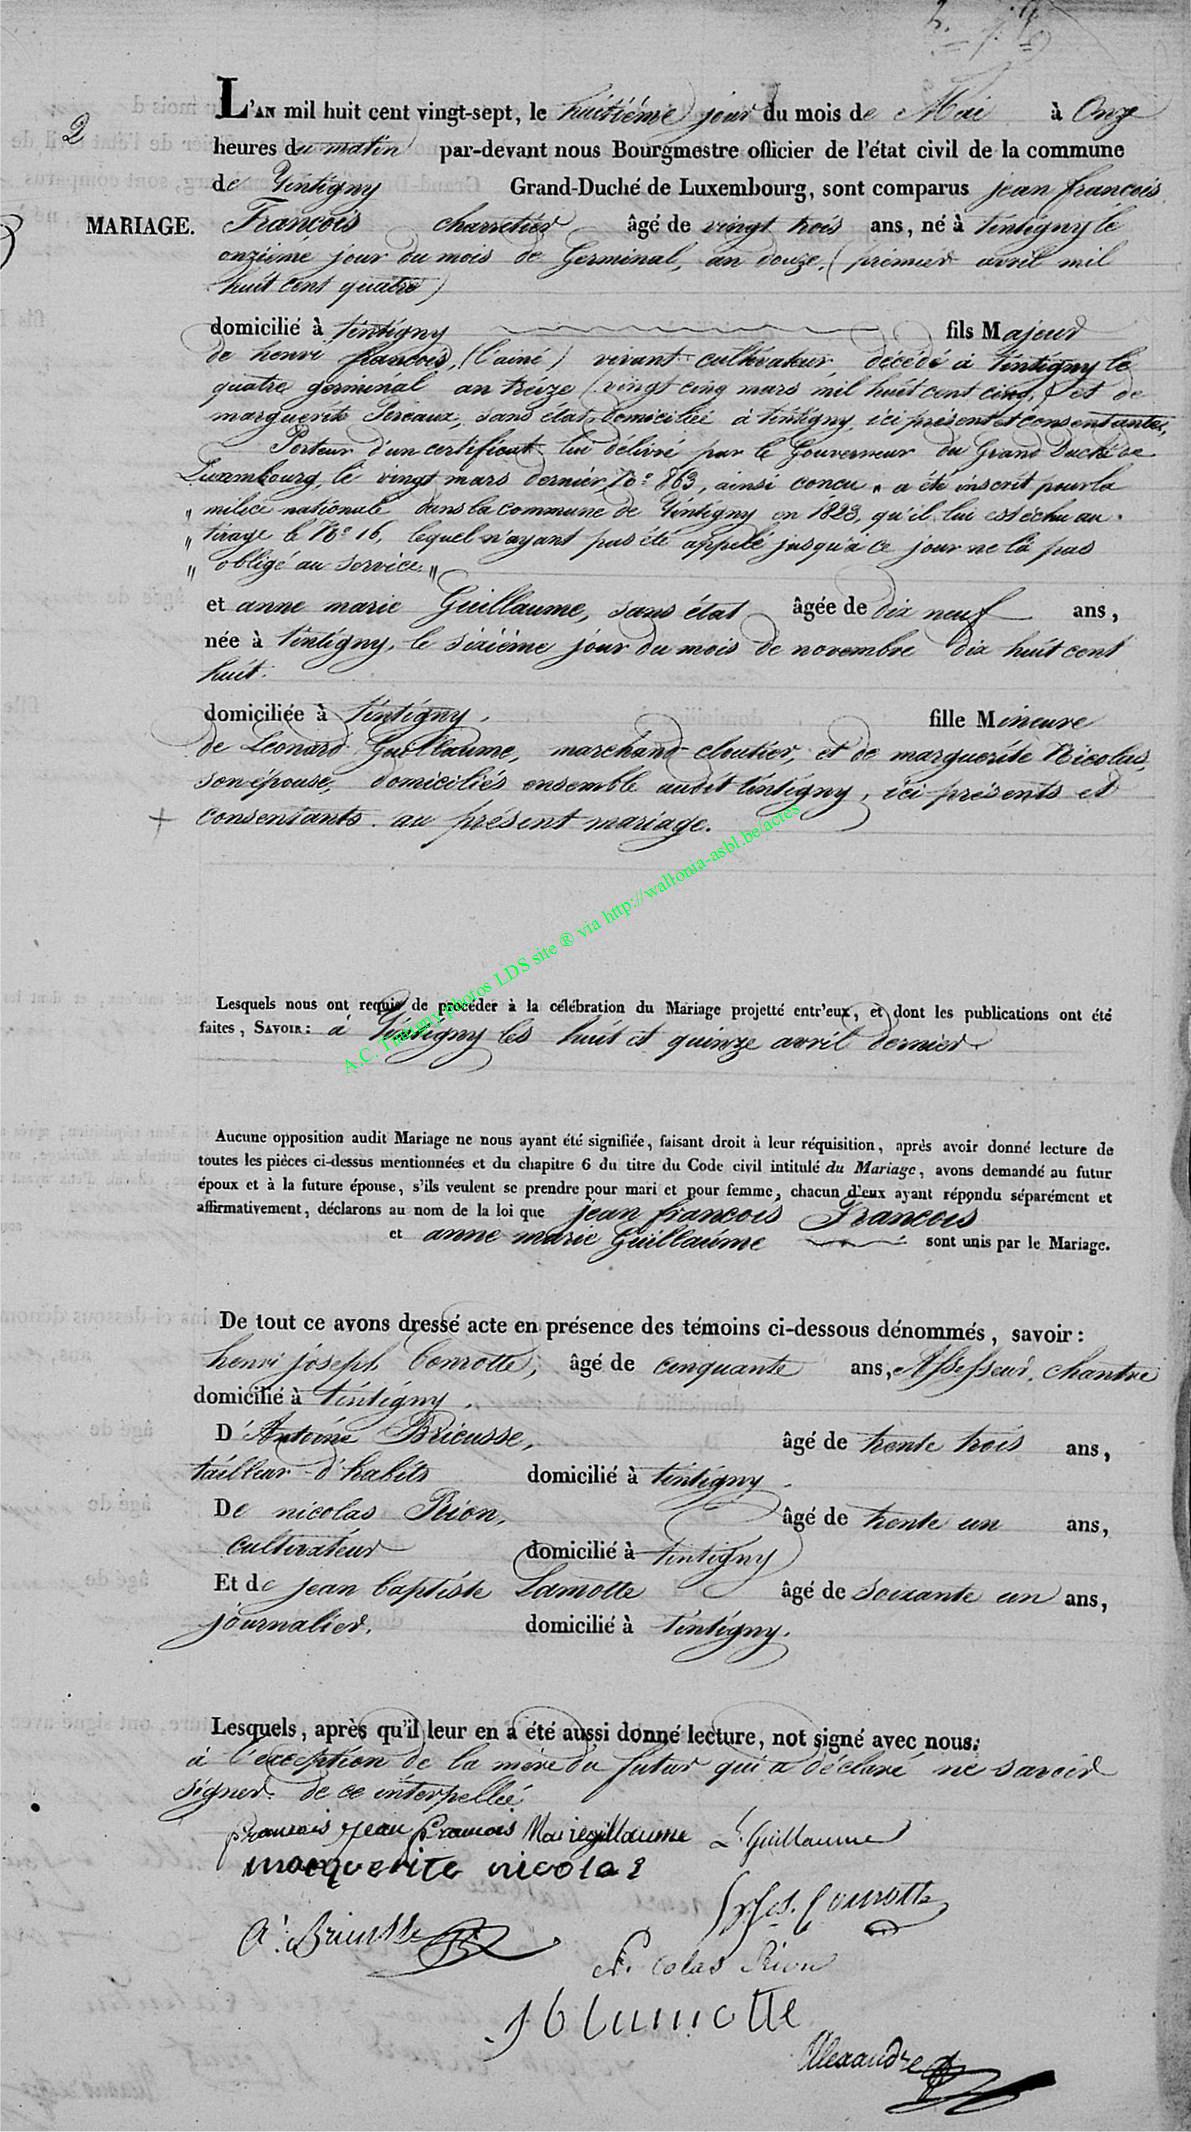 2
MARIAGE.
L'AN mil huit cent vingt-sept, le huitiéme jour du mois de Mai à Onze
heures du matin par-devant nous Bourgmestre officier de l'état civil de la commune
de Tintigny Grand-Duché de Luxembourg, sont comparus jean françois
François charretier âgé de vingt trois ans, né à tintigny le
onziéme jour du mois de Germinal, an douze, (prémier avril mil
huit cent quatre)
domicilié à tintigny fils Majeur
de henri francois, (l'ainé) vivant cultivateur décédé à tintigny le
quatre germinal an treize (vingt cinq mars mil huit cent cinq,) et de
marguerite Péreaux, sans état domiciliée à tintigny, ici présent et consentante,
Porteur d'un certificat lui délivré par le Gouverneur du Grand Duché de
Luxembourg, le vingt mars dernier, No 863, ainsi concu " a été inscrit pour la
" milice nationale dans la commune de Tintigny en 1823, qu'il lui est échu au
" tirage le No 16, lequel n'ayant pas été appelé jusqu'à ce jour ne l'a pas
" obligé au service "
et anne marie Guillaume, sans état âgée de dix neuf ans,
née à tintigny, le sixiéme jour du mois de novembre dix huit cent
huit.
domiciliée à tintigny. fille Mineure
de Léonard Guillaume, marchand cloutier, et de marguerite Nicolas,
son épouse, domiciliés ensemble audit tintigny, ici présents et
+ consentants au présent mariage.
A.C. Tintigny photos LDS site ® via http://wallonia-asbl.be/actes
Lesquels nous ont requis de procéder à la célébration du Mariage projetté entr'eux, et dont les publications ont été
faites, SAVOIR: à Tintigny les huit et quinze avril dernier.
Aucune opposition audit Mariage ne nous ayant été signifiée, faisant droit à leur réquisition, après avoir donné lecture de
toutes les pièces ci-dessus mentionnées et du chapitre 6 du titre du Code civil intitulé du Mariage, avons demandé au futur
époux et à la future épouse, s'ils veulent se prendre pour mari et pour femme, chacun d'eux ayant répondu séparément et
affirmativement, déclarons au nom de la loi que jean francois Francois
et anne marie Guillaume sont unis par le Mariage.
De tout ce avons dressé acte en présence des témoins ci-dessous dénommés, savoir:
henri joseph Conrotte, âgé de cinquante ans, Assesseur, chantre
domicilié à tintigny.
D'Antoine Bricusse, âgé de trente trois ans,
tailleur d'habits domicilié à tintigny.
De nicolas Rion, âgé de trente un ans,
cultivateur domicilié à tintigny
Et de jean baptiste Lamotte âgé de soixante un ans,
journalier. domicilié à tintigny.
Lesquels, après qu'il leur en a été aussi donné lecture, not signé avec nous.
à l'exception de la mére du futur qui a déclaré ne savoir
signer de ce interpellée
francois jean francois Marieguillaume L. Guillaume
marguerite nicolas
A. Bricusse
Conrotte
Nicolas Rion
J b lamotte
Alexandre